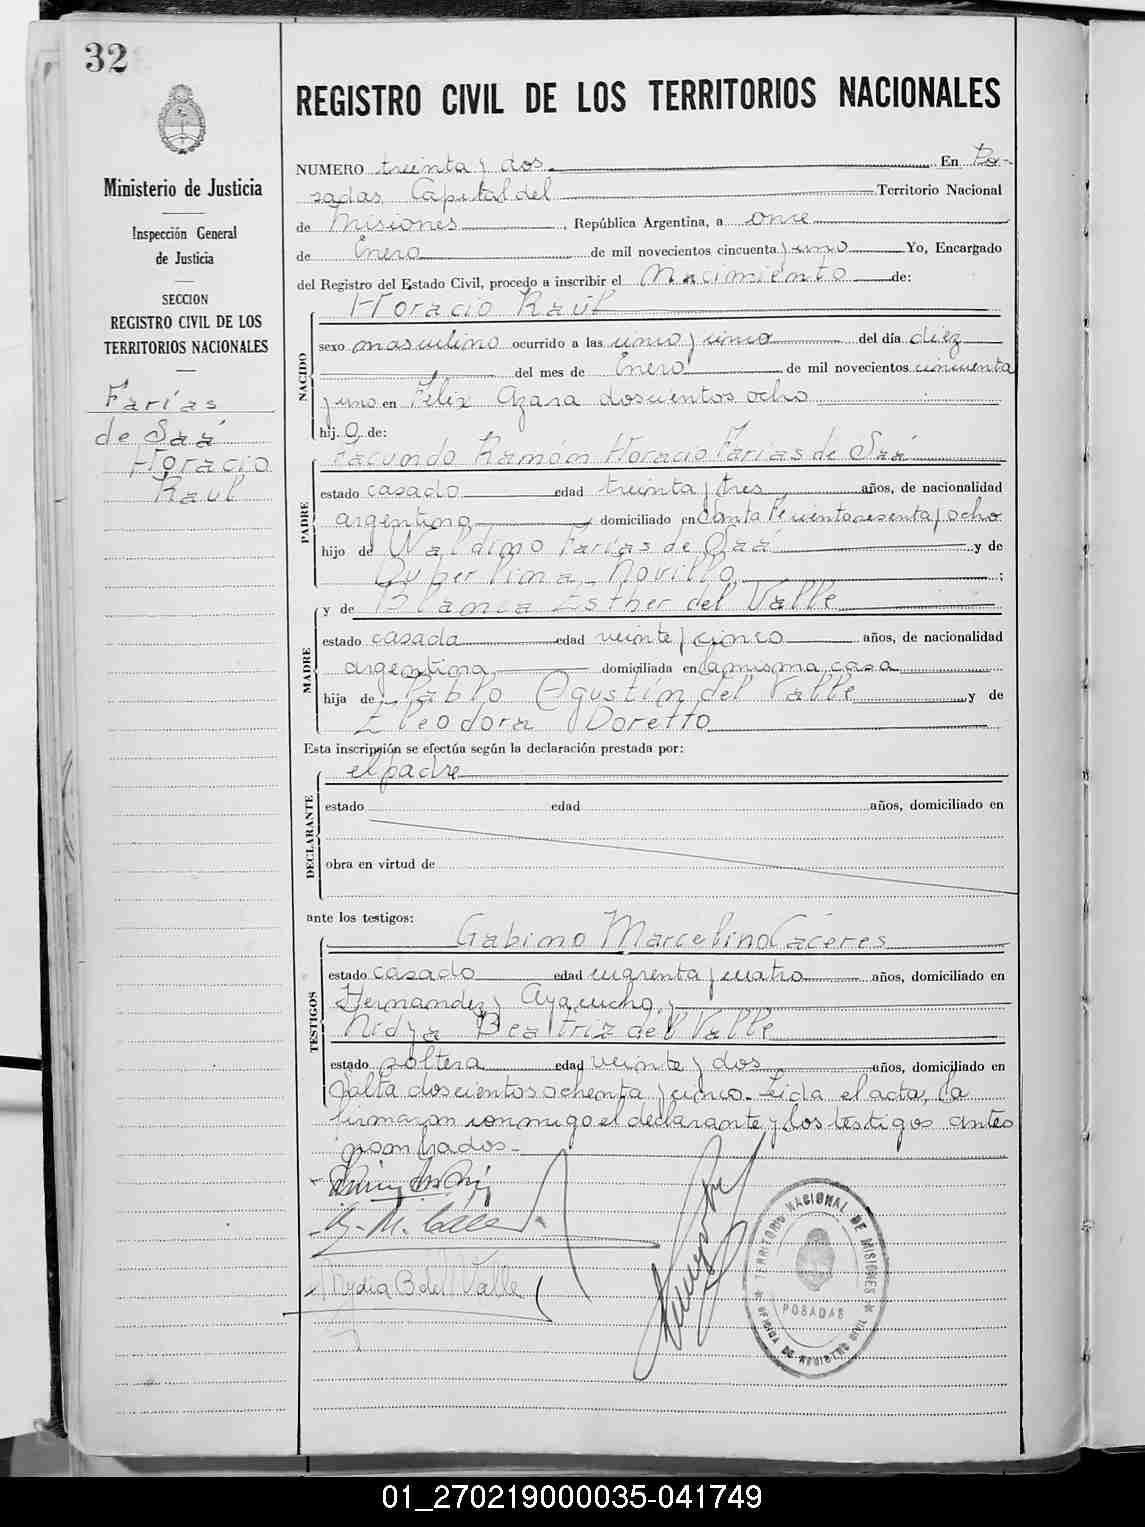 32
Ministerio de Justicia
Inspección General
de Justicia
SECCION
REGISTRO CIVIL DE LOS
TERRITORIOS NACIONALES
Farías
de Sáá
Horacio
Raúl
REGISTRO CIVIL DE LOS TERRITORIOS NACIONALES
NUMERO treinta y dos En Po-
sadas, Capital del Territorio Nacional
de Misiones, República Argentina, a once
de Enero de mil novecientos cincuenta y uno Yo, Encargado
del Registro del Estado Civil, procedo a inscribir el Nacimiento de:
Horacio Raúl
NACIDO
sexo masculino ocurrido a las cinco y cinco del día diez
del mes de Enero de mil novecientos cincuenta
y uno en Félix Azara doscientos ocho
hij o de:
PADRE
Facundo Ramón Horacio Farías de Sáá
estado casado edad treinta y tres años, de nacionalidad
argentina domiciliado en Santa Fe y ocho
hijo de Waldino Farías de Sáá y de
Duberlina Novillo ;
MADRE
y de Blanca Esther del Valle
estado casada edad veinte y cinco años, de nacionalidad
argentina domiciliada en la misma casa
hija de Pablo Agustín del Valle y de
Eleodora Doretto
Esta inscripción se efectúa según la declaración prestada por:
DECLARANTE
el padre
estado edad años, domiciliado en
obra en virtud de
ante los testigos:
TESTIGOS
Gabino Marcelino Cáceres
estado casado edad cuarenta y cuatro años, domiciliado en
Hernandez y Ayacucho, y
Nidya Beatriz del Valle
estado soltera edad veinte y dos años, domiciliado en
Salta doscientos ochenta y cinco. Leida el acta, la
firmaron conmigo el declarante y los testigos antes
nombrados.-
Nydia B del Valle
TERRITORIO NACIONAL DE MISIONES
POSADAS
OFICINA DE REGISTRO CIVIL
01_270219000035-041749